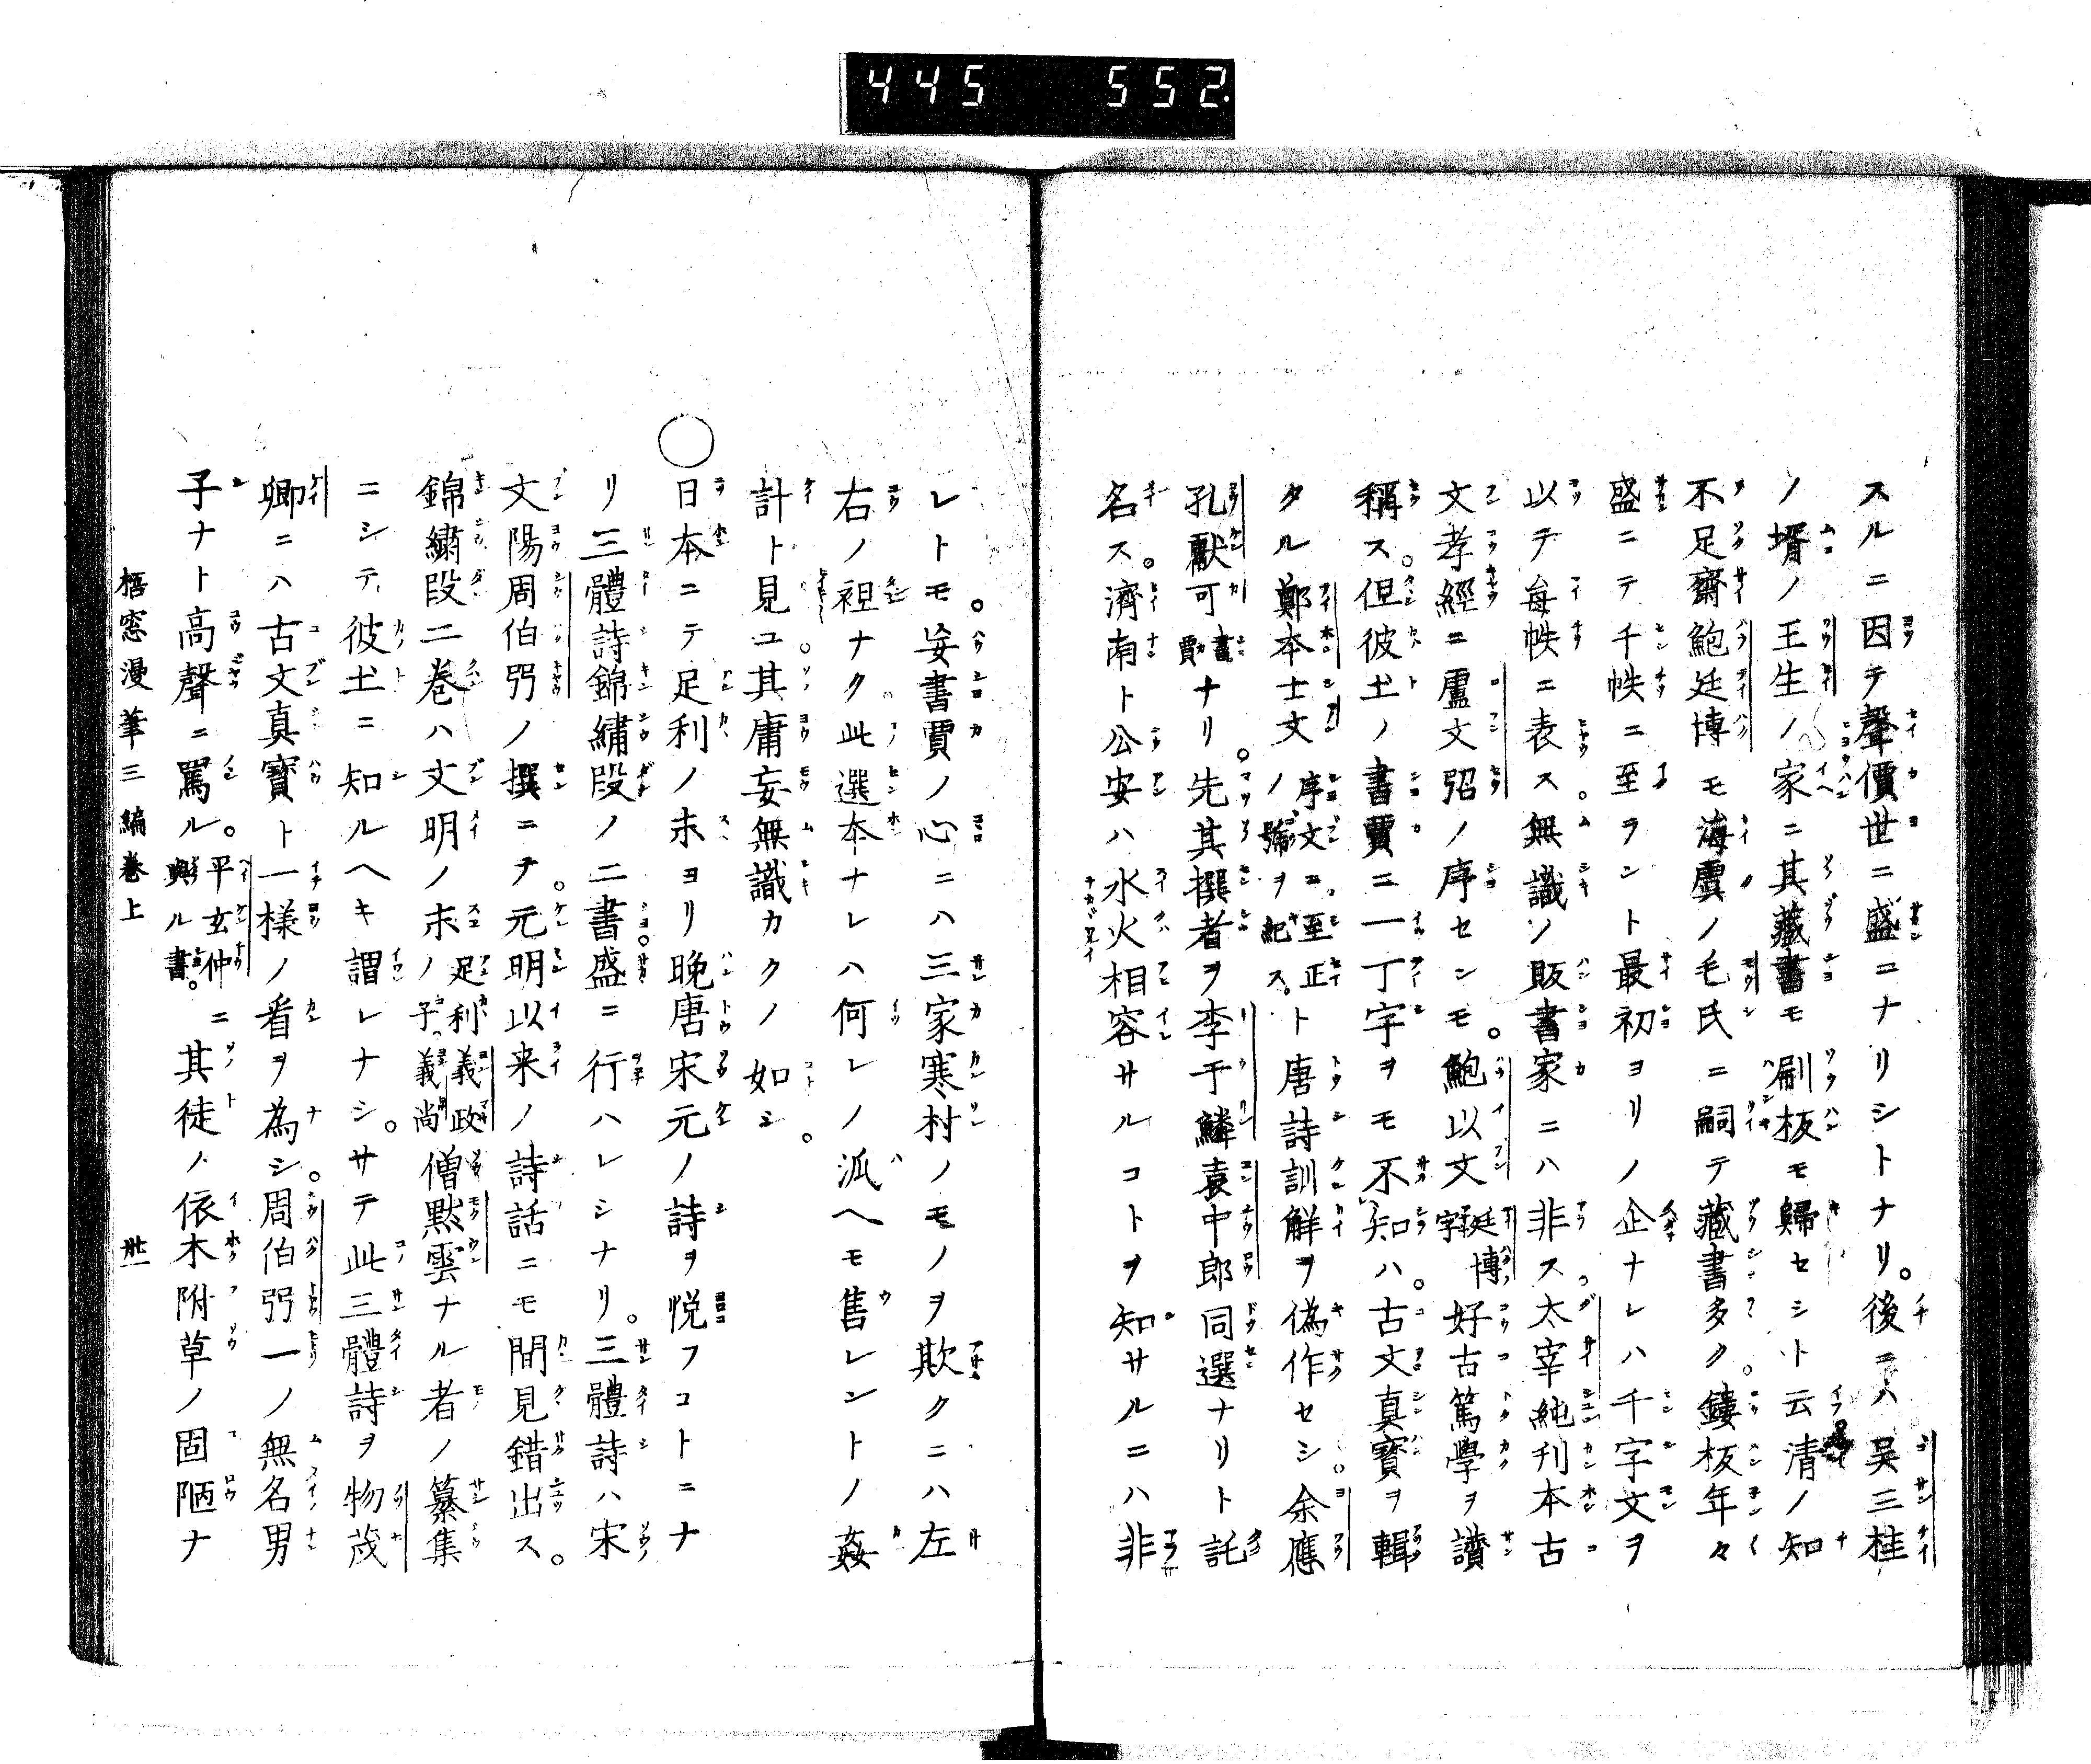 445 552
スルニ因テ聲價世ニ盛ニナリシトナリ。後ニハ吴三桂
ノ壻ノ王生ノ家ニ其藏書モ刷板モ歸セシト云清ノ知
不足齋鮑廷博モ海虞ノ毛氏ニ嗣テ藏書多ク。鏤板年々
盛ニテ千帙ニ至ラント最初ヨリノ企ナレハ千字文ヲ
以テ每帙ニ表ス。無識ソ販書家ニハ非ス太宰純刊本古
文孝經ニ盧文弨ノ序セシモ。鮑以文廷博字好古篤學ヲ讚
稱ス。但彼土ノ書賈ニ一丁字ヲモ不知ハ。古文真寶ヲ輯
タル鄭本士文ノ序文ニ至正ノ號ヲ紀ス。ト唐詩訓解ヲ偽作セシ。余應
孔獻可書賈ナリ。先其撰者ヲ李于鱗袁中郎同選ナリト託
名ス。濟南ト公安ハ水火相容サルコトヲ知サルニハ非
レトモ。妄書賈ノ心ニハ三家寒村ノモノヲ欺クニハ左
右ノ袒ナク此選本ナレハ何レノ派ヘモ售レントノ姦
計ト見ユ。其庸妄無識カクノ如シ。
○日本ニテ足利ノ末ヨリ晩唐宋元ノ詩ヲ悦フコトニナ
リ三體詩錦繡段ノ二書盛ニ行ハレシナリ。三體詩ハ宋
文陽周伯弜ノ撰ニテ。元明以来ノ詩話ニモ間見錯出ス。
錦繡段二卷ハ文明ノ末ノ足利義政子義尚僧黙雲ナル者ノ纂集
ニシテ彼土ニ知ルヘキ謂レナシ。サテ此三體詩ヲ物茂
卿ニハ古文真寶ト一樣ノ看ヲ為シ。周伯弜一ノ無名男
子ナト高聲ニ罵ル。平玄仲ニ與ル書。其徒ノ依木附草ノ固陋ナ
梧窓漫筆三編卷上 卅一